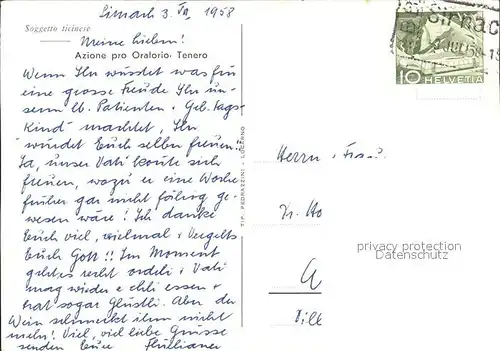 Sirnach 3. VII. 1958
Soggetto ticinese
Meine Lieben!
Azione pro Oratorio Tenero
Wenn Ihr wüsstet was für
eine grosse Freude Ihr un-
serm lb. Patienten & Geb. tags-
kind machtet, Ihr
würdet Euch selber freuen!
Ja, unser Vati konnte sich
freuen, wozu er eine Woche
früher gar nicht fähig ge-
wesen wäre! Ich danke
Euch viel, vielmal & Vergelts
Euch Gott!! Im Moment
geht es recht ordeli & Vati
mag wieder e chli essen &
hat sogar Glüstli. Aber der
Wein schmeckt ihm nicht
mehr! Viel, viel liebe Grüsse
senden Eure
TIP. PEDRAZZINI - LOCARNO
Sirnach
10 HELVETIA
Herrn & Frau
privacy protection
Datenschutz
Vill